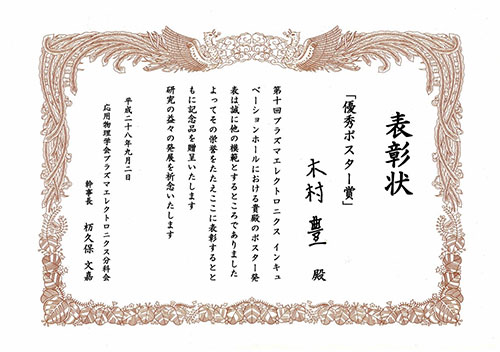 表彰状
「優秀ポスター賞」
木村 豊 殿
第十回プラズマエレクトロニクス インキュ
ベーションホールにおける貴殿のポスター発
表は誠に他の模範とするところでありました
よってその栄誉をたたえここに表彰するとと
もに記念品を贈呈いたします
研究の益々の発展を祈念いたします
平成二十八年九月二日
応用物理学会プラズマエレクトロニクス分科会
幹事長 杤久保 文嘉